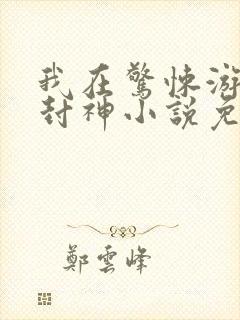 我在驚悚游
封神小說免
鄭雲峰